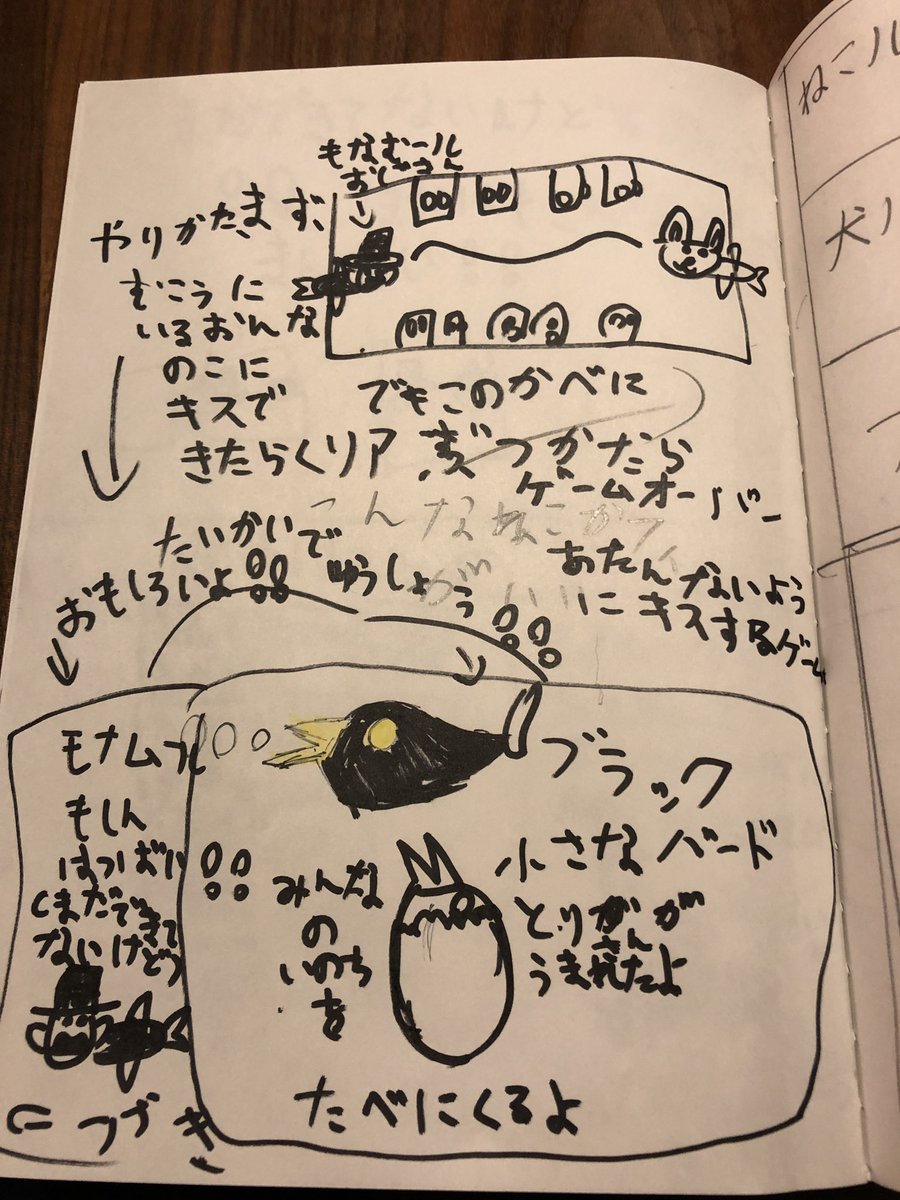 もなむール
おじさん
やりかた、まず、
むこうに
いるおんな
のこに
キスで
きたらくリア
でもこのかべに
ぶつかたら
ゲームオーバー
こんなねこカフィ
がいい
あたんないよう
にキスするゲーム
たいかいで
ゆうしょう!!
おもしろいよ!!
モナムール
もしん
はつばい
くまだできて
ないけどう
つづき
ブラック
バード
小さな
とりがが
さん
うまれたよ
!!
みんな
の
いのち
を
たべにくるよ
ねこル
犬ル